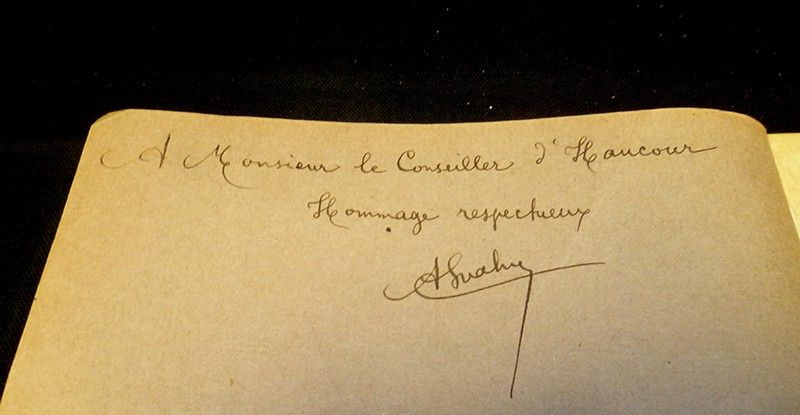 A Monsieur le Conseiller d'Haucour
Hommage respectueux